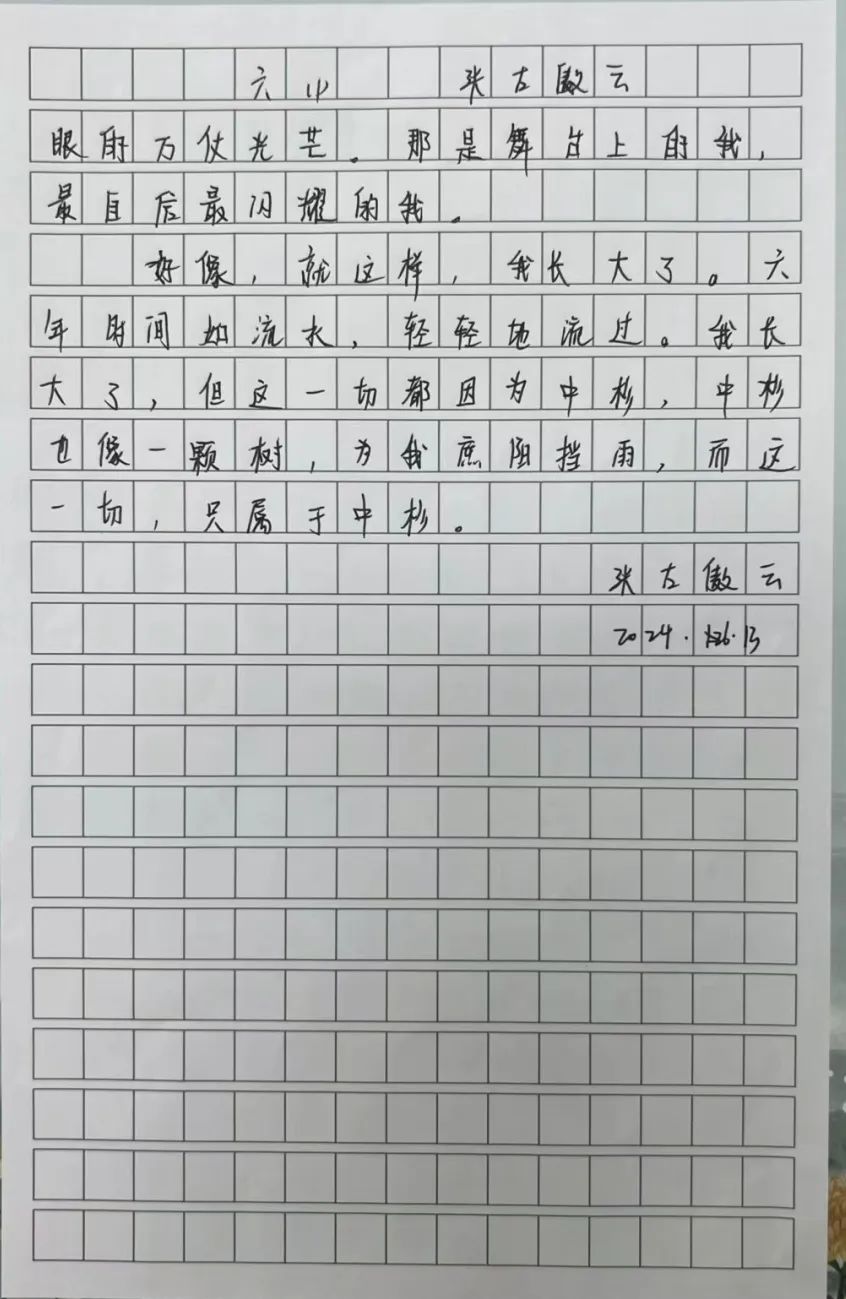 六(4) 张左傲云
眼射万仗光芒。那是舞台上的我，
最自后最闪耀的我。
好像，就这样，我长大了。六
年时间如流水，轻轻地流过。我长
大了，但这一切都因为中杉，中杉
也像一颗树，为我庶阳挡雨，而这
一切，只属于中杉。
张左傲云
2024. 6.13